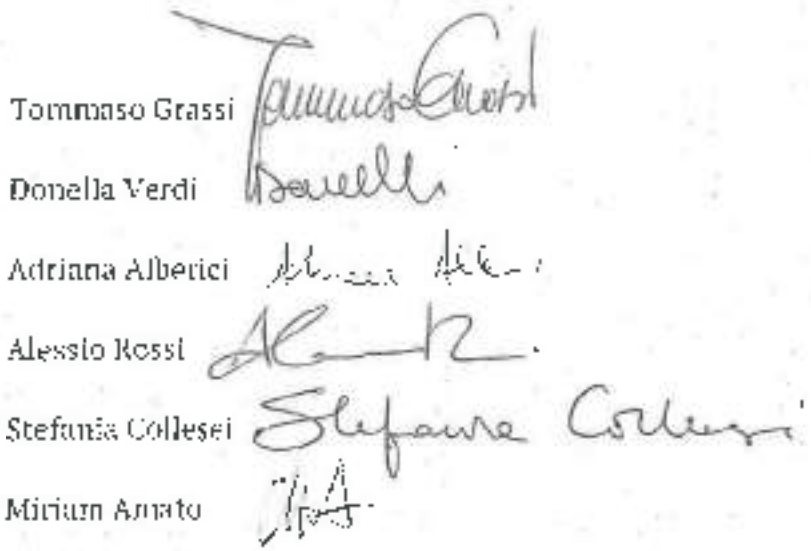 Tommaso Grassi Tommaso Grassi
Donella Verdi
Adriana Alberici
Alessio Rossi
Stefania Collesei Stefania Collesei
Miriam Amato